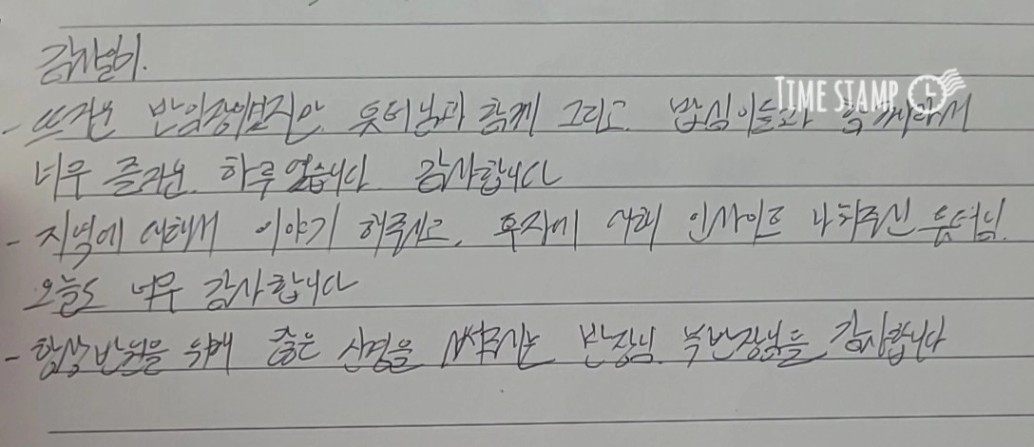 감사일기.
TIME STAMP
- 뜨거운 튜터님과 함께 그리고 밥심이들과 함께라서
너무 즐거운 하루였습니다 감사합니다
- 지역에 대해서 이야기 해주시고, 투자에 대해 인사이트 나눠주신 튜터님
오늘도 너무 감사합니다
- 항상 반원을 위해 좋은 신경을 써주시는 반장님 부반장님들 감사합니다